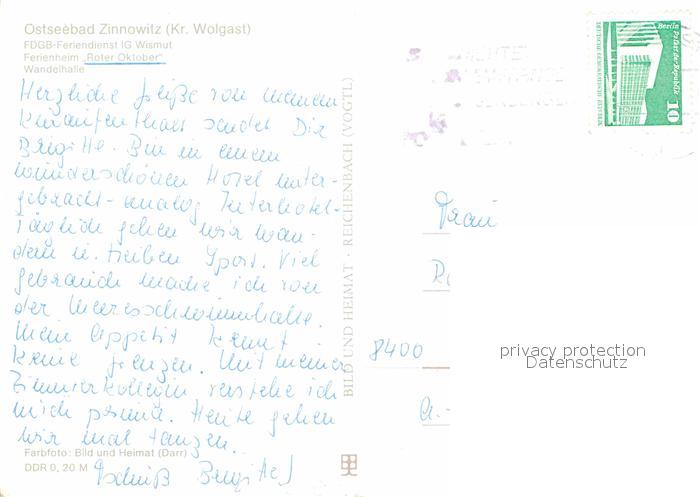 Ostseebad Zinnowitz (Kr. Wolgast)
FDGB-Feriendienst IG Wismut
Ferienheim „Roter Oktober"
Wandelhalle
Herzliche Grüße von meinem
Kuraufenthalt sendet Dir
Brigitte. Bin in einem
wunderschönen Hotel unter-
gebracht - analog Interhotel -
Täglich gehen wir wan-
dern u. treiben Sport. Viel
gebrauch mache ich von
der Meeresschwimmhalle.
Mein Appetit kennt
keine Grenzen. Mit meiner
Zimmerkollegin verstehe ich
mich prima. Heute gehen
wir mal tanzen.
Tschüß Brigitte
Farbfoto: Bild und Heimat (Darr)
DDR 0,20 M
BILD UND HEIMAT · REICHENBACH (VOGTL)
Berlin
Palast der Republik
10
Frau
8400
privacy protection
Datenschutz